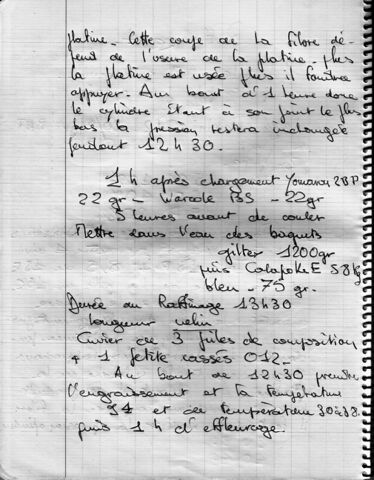 platine. Cette coupe de la fibre dé-
pend de l'usure de la platine. plus
la platine est usée plus il faudra
appuyer. Au bout d'1 heure donc
le cylindre Etant à son point le plus
bas la pression restera inchangée
pendant 12 h 30.
1 h après chargement 28 P
22 gr - BS - 22 gr
5 heures avant de couler
Mettre dans l'eau des baquets
1200 gr
puis E 58 kg
bleu - 75 gr.
Durée du Raffinage 13 h 30
longueur velin
Cuvier de 3 piles de composition
+ 1 petite cassés 012 -
Au bout de 12 h 30 prendre
l'engraissement et la température
et de température 30 à 38
puis 1 h d'effleurage.